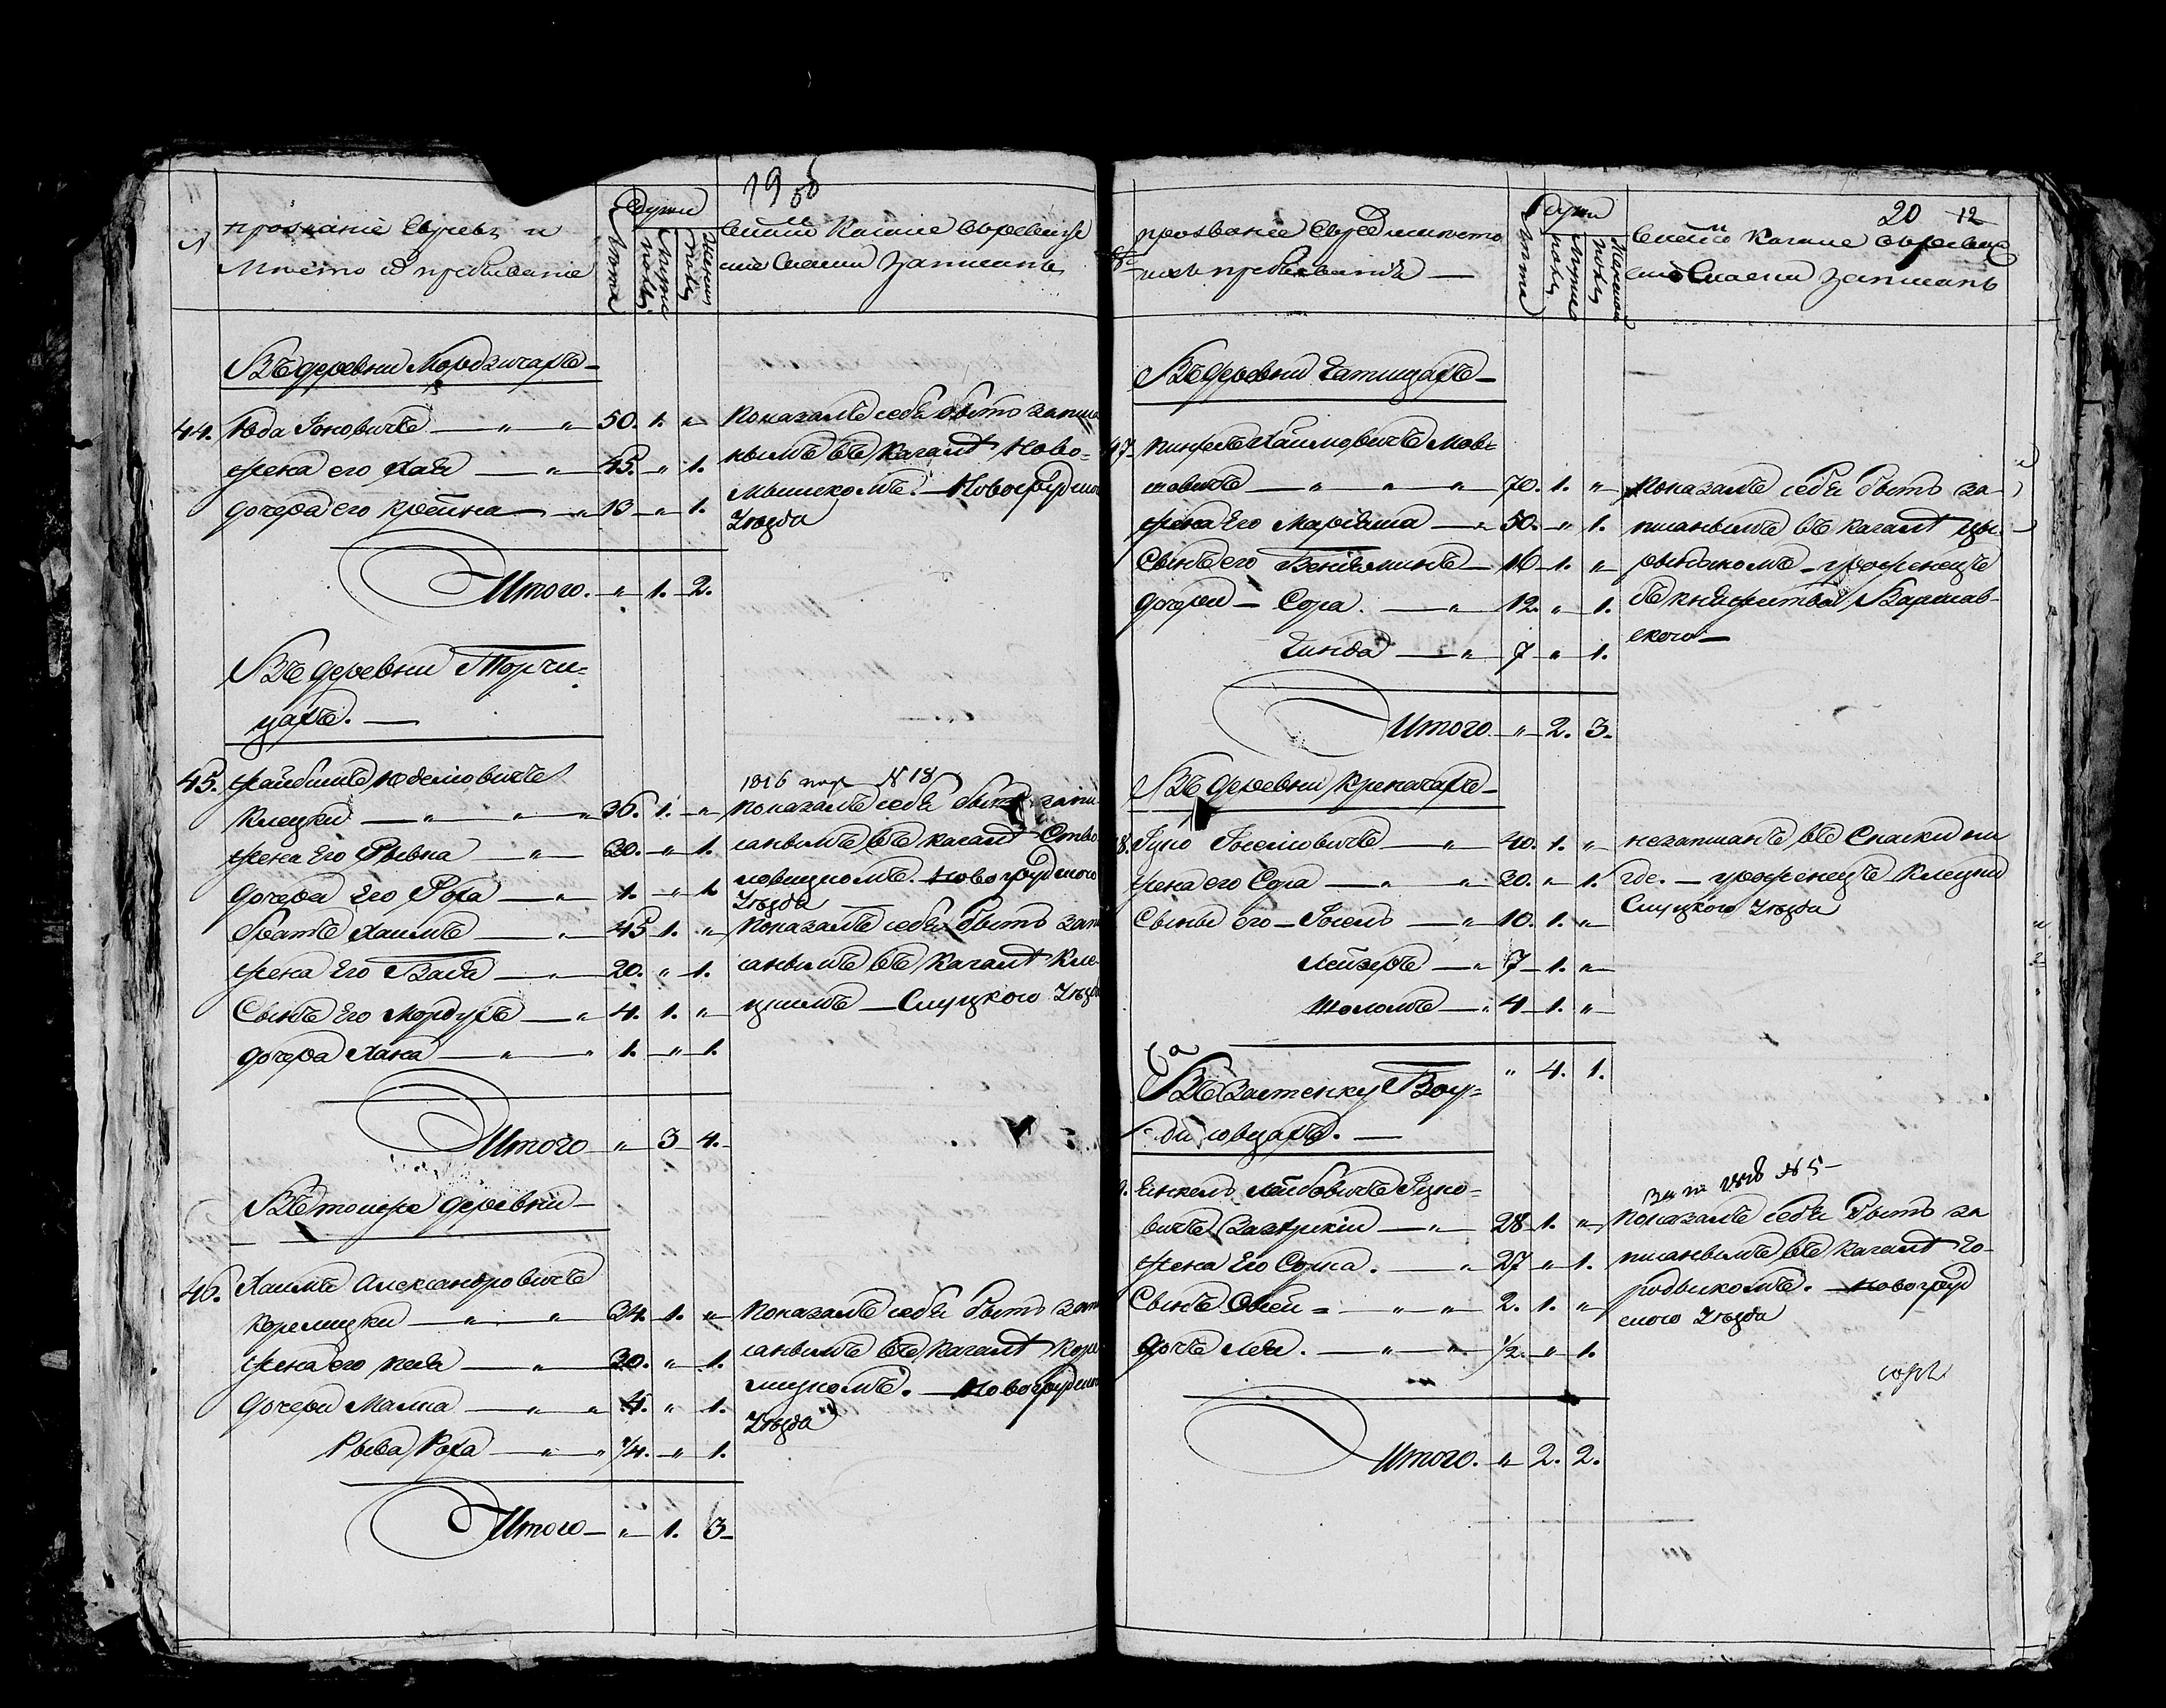 19 об
№
прозваніе Евреевъ и
Место ихъ пребываніе
Лета
Души
Мужеска полу
Женска полу
записанъ
Въ деревни Мордзичахъ
44. Юда Іоновичъ 50. 1. „
жена его Хая 45. „ 1.
дочера его Крейна 13 „ 1.
Показалъ себя быть записа
нымъ въ Кагалѣ Ново=
мышскомъ. Новогрудского
Уѣзда
Итого. „ 1. 2.
Въ деревни Торчи=
цахъ.
45. Файбишъ Юделовичъ
Клецки 36. 1. „
жена Его Рывка 30. „ 1.
дочера Его Роха 1. „ 1.
братъ Хаимъ 45 1. „
жена Его Бася 20. „ 1.
Сынъ Его Мордухъ 4. 1. „
дочера Хана 1. „ 1.
1816 № 18
показалъ себя быть запи
санымъ въ кагалѣ Столо
вицкомъ. Новогрудского
Уѣзда
Показалъ себя быть запи
санымъ въ Кагалѣ Кле
цкимъ Слуцкого Уѣзда
Итого „ 3 4.
Въ тойже деревни
46. Хаимъ Александровичъ
Корелицки 34. 1. „
жена его песя 30. „ 1.
дочери Малка 4. „ 1.
Рыва Роха 1/4. „ 1.
Показалъ себя быть запи
санымъ въ Кагалѣ Коре
лицкомъ. Новогрудского
Уѣзда
Итого „ 1. 3
20 12
прозваніе Евреевъ место
ихъ пребыванія
Лета
Души
Мужеска полу
Женска полу
записанъ
Въ деревни Гатищахъ
47. Пинхасъ Хаимовичъ Мов=
шовичъ 70. 1. „
жена Его Маріяша 50. „ 1.
Сынъ его Веніяминъ 16 1. „
дочери Сора. 12. „ 1.
Гинда 7 „ 1.
Показалъ себя быть за
писанымъ въ кагалѣ Цы
рынскомъ уроженецъ
съ княжства Варшав
ского
Итого „ 2. 3.
Въ деревни Крепачахъ
8. Іуко Іоселовичъ 40. 1. „
жена его Сора 30. „ 1.
Сыны его Іосель 10. 1. „
Лейзеръ 7 1. „
Шоломъ 4 1. „
незаписанъ въ Сказки ни
гдѣ. уроженецъ Клецкій
Слуцкого Уѣзда
„ 4. 1.
Въ Застенку Боу=
диловцахъ.
9. Янкель Лейбовичъ Іцко=
вичъ 28 1. „
жена Его Сошка. 27 „ 1.
Сынъ Овсей = 2. 1. „
дочъ Лея. 1/2. „ 1.
№ 5
Показалъ себя быть за
писанымъ въ кагалѣ Го
родыскомъ. Новогруд
ского Уѣзда
Итого. „ 2. 2.